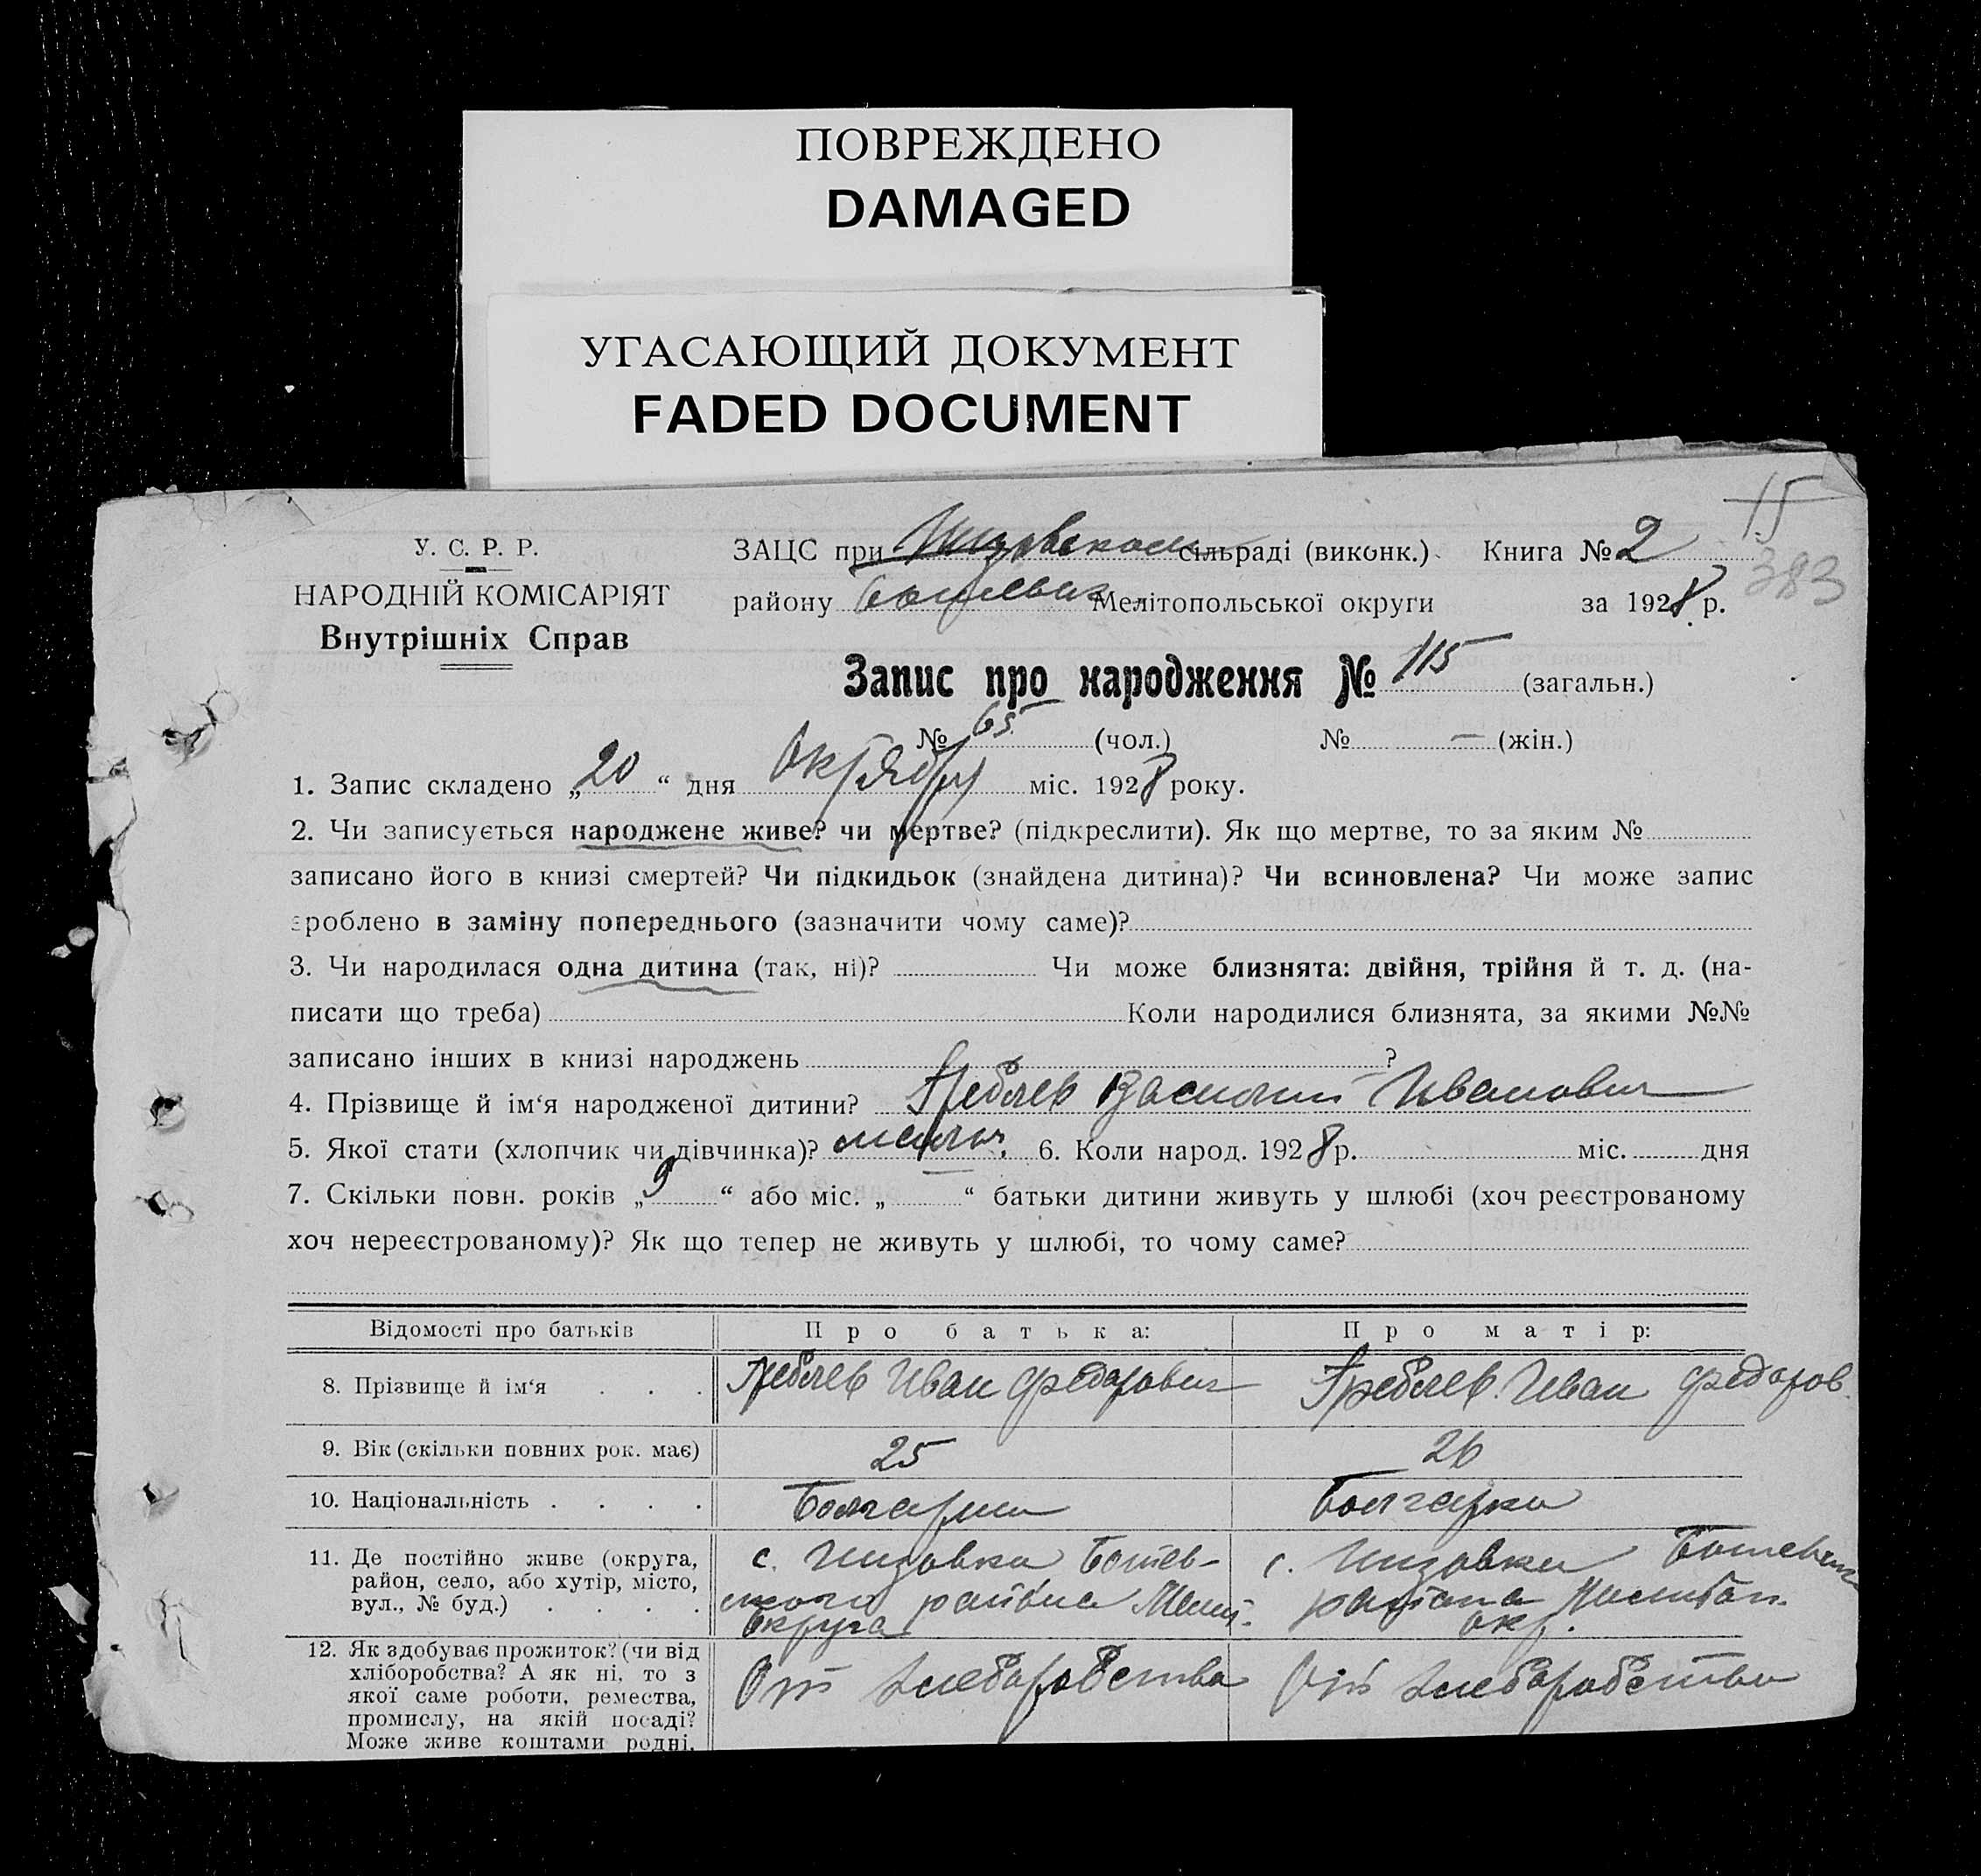 ПОВРЕЖДЕНО
DAMAGED
УГАСАЮЩИЙ ДОКУМЕНТ
FADED DOCUMENT
15
383
У. С. Р. Р.
НАРОДНІЙ КОМІСАРІЯТ
Внутрішніх Справ
ЗАЦС при сільраді (виконк.) Книга № 2
району Мелітопольської округи за 1928 р.
Запис про народження № 115 (загальн.)
№ 65 (чол.) № — (жін.)
1. Запис складено „20“ дня Октября міс. 1928 року.
2. Чи записується народжене живе? чи мертве? (підкреслити). Як що мертве, то за яким №
записано його в книзі смертей? Чи підкидьок (знайдена дитина)? Чи всиновлена? Чи може запис
зроблено в заміну попереднього (зазначити чому саме)?
3. Чи народилася одна дитина (так, ні)? Чи може близнята: двійня, трійня й т. д. (на-
писати що треба) Коли народилися близнята, за якими №№
записано інших в книзі народжень ?
4. Прізвище й ім‘я народженої дитини? Иванович
5. Якої стати (хлопчик чи дівчинка)? 6. Коли народ. 1928 р. міс. дня
7. Скільки повн. років „9“ або міс. „ “ батьки дитини живуть у шлюбі (хоч реєстрованому
хоч нереєстрованому)? Як що тепер не живуть у шлюбі, то чому саме?
Відомості про батьків Про батька: Про матір:
8. Прізвище й ім‘я . . . Иван Федорович Иван Федоров.
9. Вік (скільки повних рок. має) 25 26
10. Національність . . . . Болгарин Болгарка
11. Де постійно живе (округа, с. Низовка Ботев- с. Низовка
район, село, або хутір, місто, ского района Мелит. района
вул., № буд.) . . . . округа окр.
12. Як здобуває прожиток? (чи від
хліборобства? А як ні, то з От хлеборобства От хлеборобства
якої саме роботи, ремества,
промислу, на якій посаді?
Може живе коштами родні,